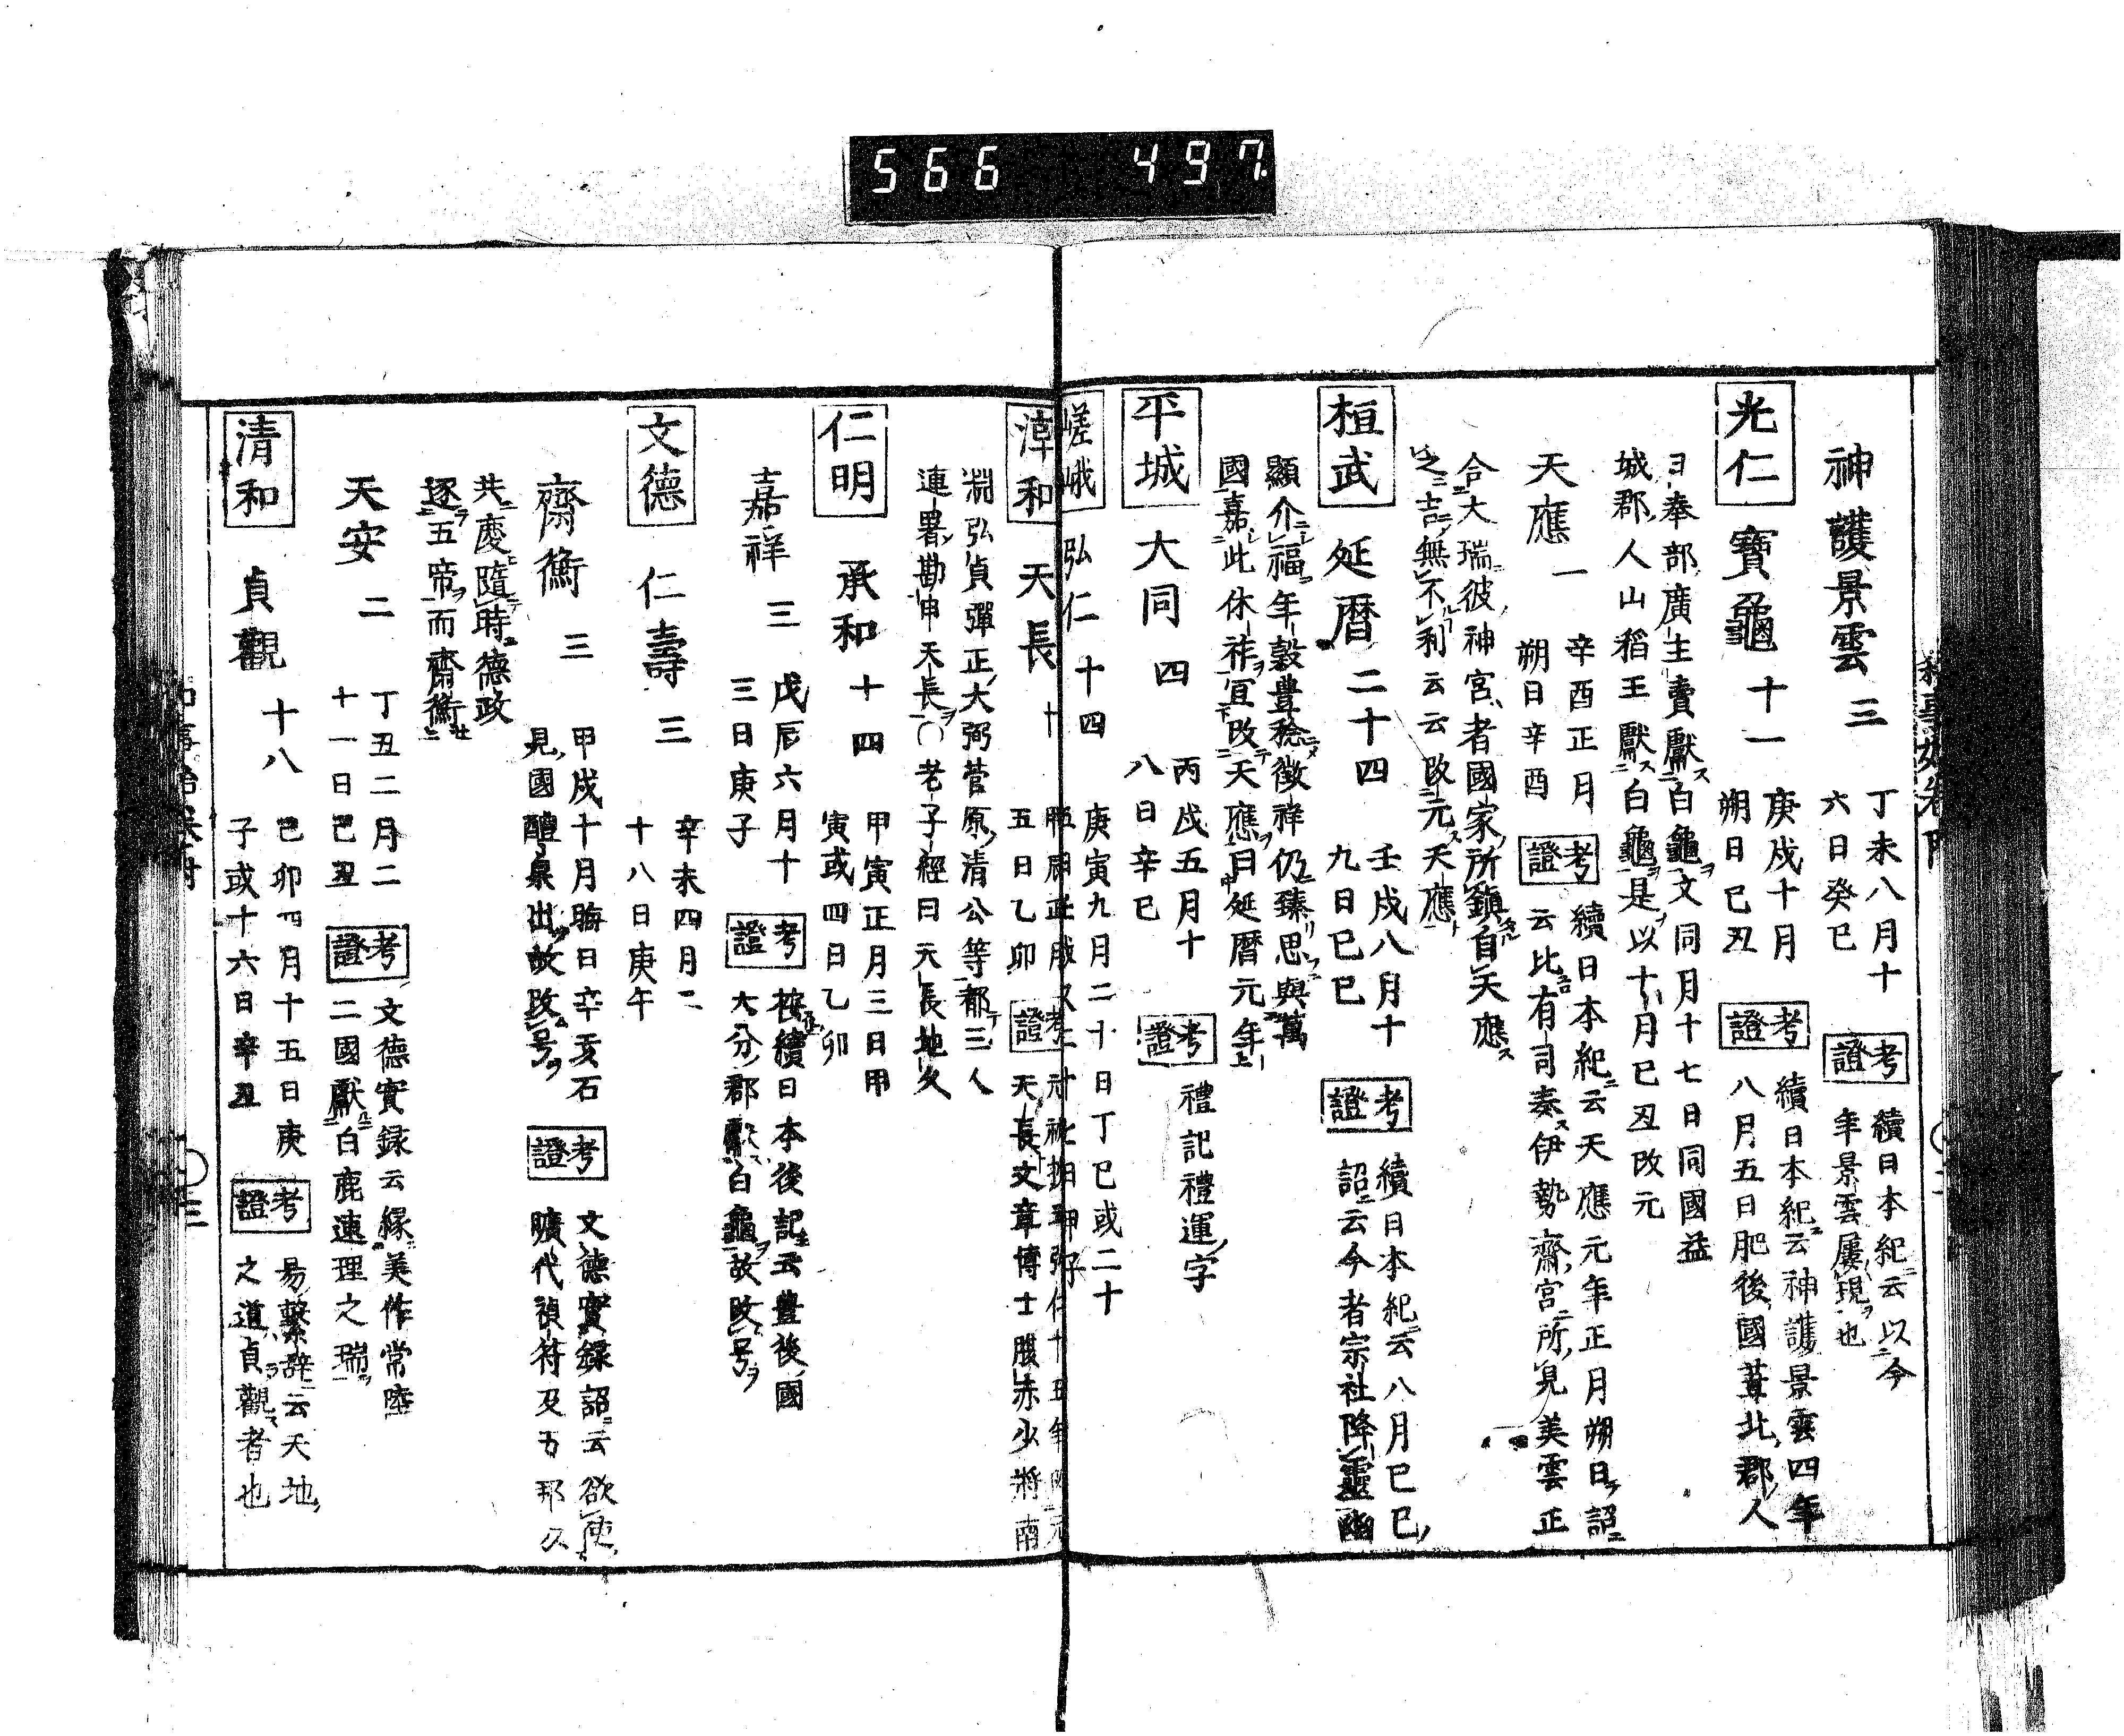 566 497
神護景雲 三 丁未八月十
六日癸巳 考證 續日本紀云以今
年景雲屢現也
光仁 寶龜 十一 庚戌十月
朔日己丑 考證 續日本紀云神護景雲四年
八月五日肥後國葦北郡人
ヨ奉部廣主賣獻白龜文同月十七日同國益
城郡人山稻王獻白龜是以十月己丑改元
天應 一 辛酉正月
朔日辛酉 考證 續日本紀云天應元年正月朔日詔
云比有司奏伊勢齋宮所見美雲正
合大瑞彼神宮者國家所鎮自天應
之吉無不利云云改元天應
桓武 延暦 二十四 壬戌八月十
九日己巳 考證 續日本紀云八月己巳
詔云今者宗社降靈幽
顯介福年穀豊稔徵祥仍臻思與萬
國嘉此休祚宜改天應曰延暦元年
平城 大同 四 丙戌五月十
八日辛巳 考證 禮記禮運字
嵯峨 弘仁 十四 庚寅九月二十日丁巳或二十
淳和 天長 十
五日乙卯 考證
天長文章博士腹赤少將南
淵弘貞彈正大弼菅原清公等都三人
連署勘申天長〇老子經曰天長地久
仁明 承和 十四 甲寅正月三日甲
寅或四日乙卯
嘉祥 三 戊辰六月十
三日庚子 考證 按續日本後記云豊後國
大分郡獻白龜故改号
文德 仁壽 三 辛未四月二
十八日庚午
齋衡 三 甲戌十月晦日辛亥石
見國醴泉出故改号 考證 文德實録詔云欲使
曠代禎符及万邦以
共慶隨時德政
逐五帝而齋衡
天安 二 丁丑二月二
十一日己丑 考證 文德實録云緣美作常陸
二國獻白鹿連理之瑞
清和 貞觀 十八 己卯四月十五日庚
子或十六日辛丑 考證 易繫辭云天地
之道貞觀者也